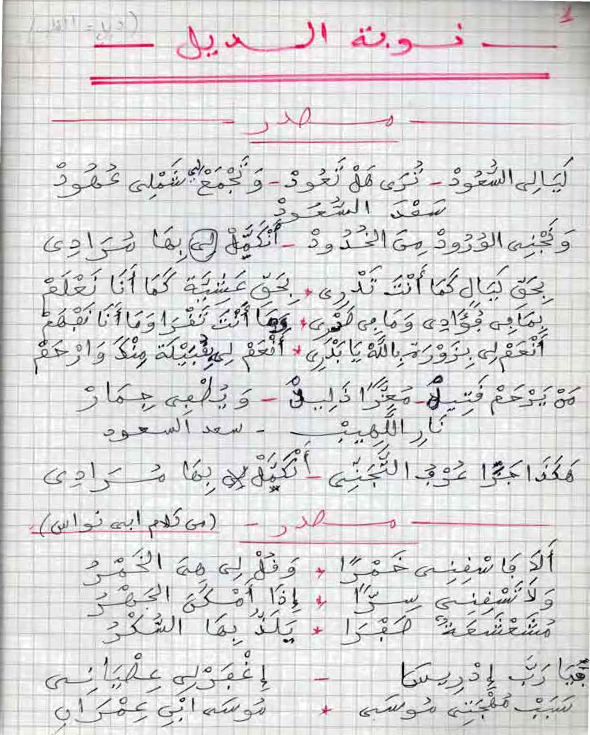 1
نوبة الديل
مصدر
لَيَالِي السُّعُودْ - تُرَى هَلْ تَعُودْ - وَتَجْمَعْ لِي شَمْلِي عُهُودْ
سَعْدَ السُّعُودْ
وَنَجْنِي الوُرُودْ مِنَ الخُدُودْ - أَنْكَمَّلْ لِي بِهَا مُرَادِي
بِحَقِّ لَيَالٍ كَمَا أَنْتَ تَدْرِي * بِحَقِّ عَشِيَّة كَمَا أَنَا نَعْلَمْ
بِمَا فِي فُؤَادِي وَمَا فِي صَدْرِي * وَمَا أَنْتَ تَقْرَا وَمَا أَنَا نَفْهَمْ
أَنْعَمْ لِي بِزَوْرَة بِاللَّهْ يَا بَدْرِي * أَنْعَمْ لِي بِقُبَيْلَة مِنْكَ وَارْحَمْ
مَنْ يَرْحَمْ قَتِيلْ - مُغَرَّا ذَلِيلْ - وَيُطْفِي جِمَارْ
نَارِ اللَّهِيبْ - سعد السعود
هَكَذَا جَرَا عُرْفُ التَّجَنِّي - أَنْكَمَّلْ لِي بِهَا مُرَادِي
مصدر - (من كلام ابي نواس)
أَلَا فَاسْقِنِي خَمْرًا * وَقُلْ لِي هِيَ الخَمْرُ
وَلَا تَسْقِنِي سِرًّا * إِذَا أَمْكَنَ الجَهْرُ
مُشَعْشَعَة صَفْرَا * يَلَذُّ بِهَا السُّكْرُ
فَيَا رَبَّ إِدْرِيسَا - إِغْفِرْ لِي عِصْيَانِي
سَبَبْ مُهْجَتِي مُوسَى * مُوسَى ابْنِ عِمْرَانِ